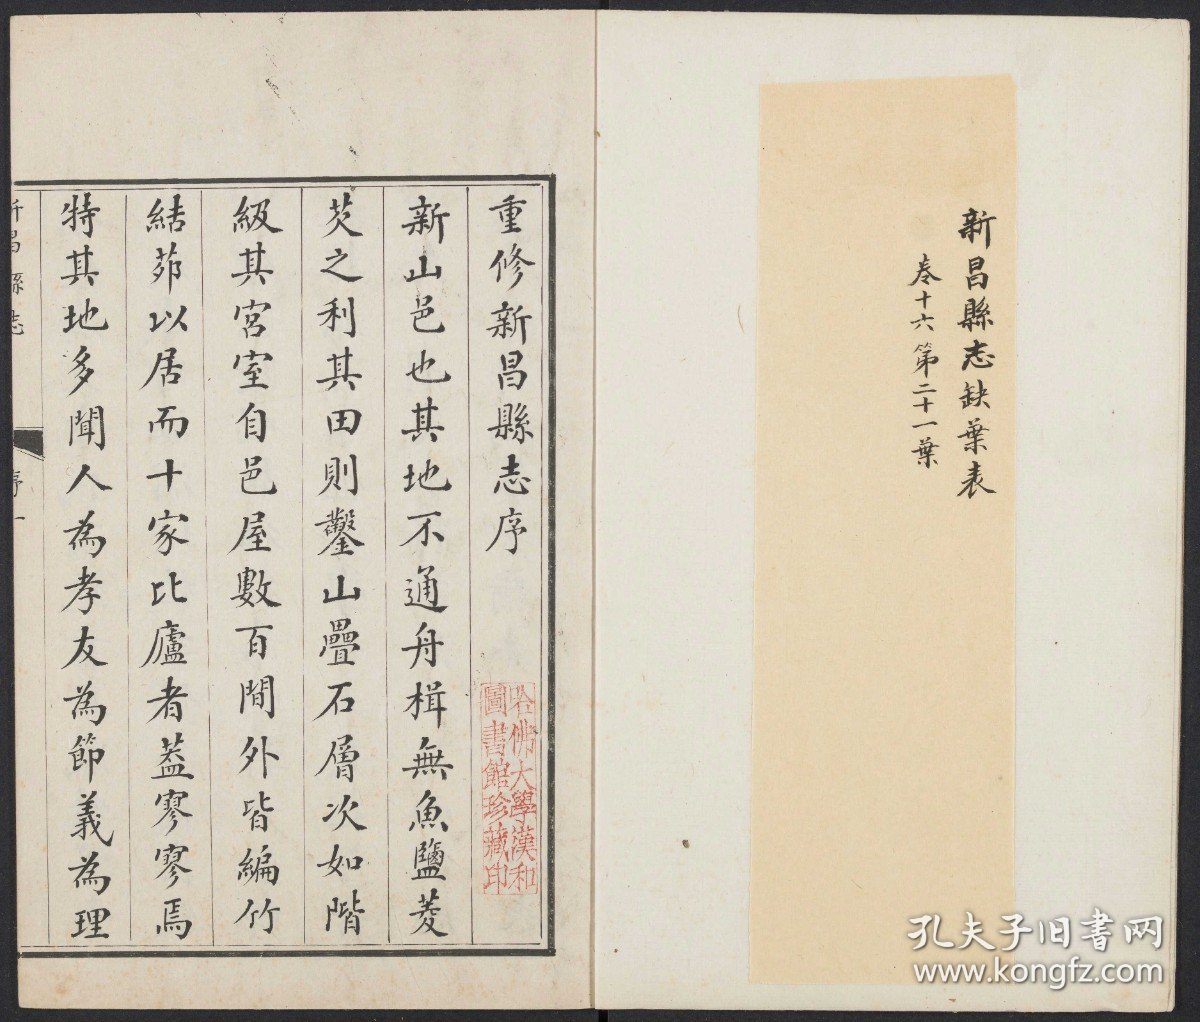 新昌縣志缺葉表
卷十六第二十一葉
重修新昌縣志序
新山邑也其地不通舟楫無魚鹽菱
芡之利其田則鑿山疊石層次如階
級其宮室自邑屋數百間外皆編竹
結茆以居而十家比廬者蓋寥寥焉
特其地多聞人為孝友為節義為理
新昌縣志
序一
哈佛大學漢和
圖書館珍藏印
孔夫子旧书网
www.kongfz.com